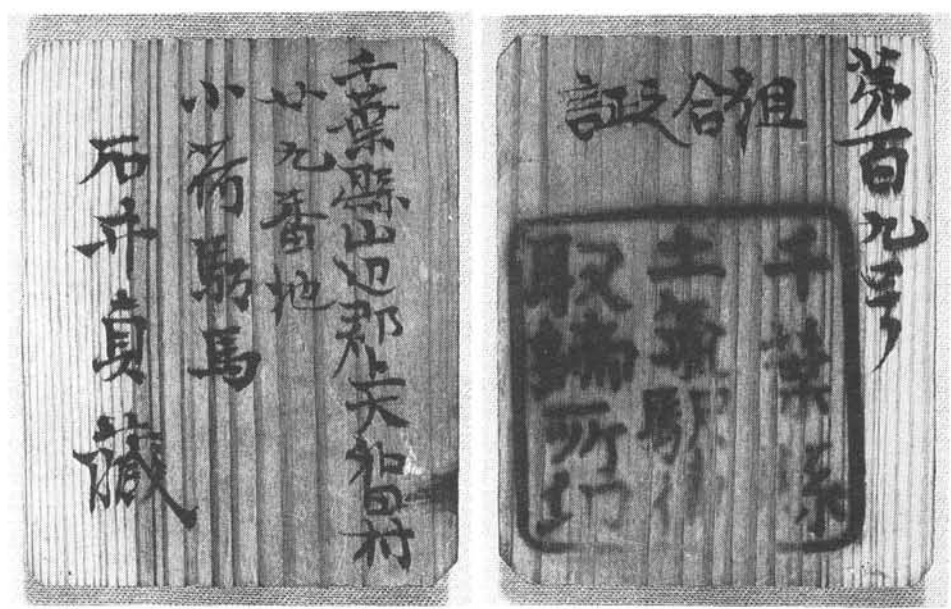 第百九号
組合証
千葉縣
土氣駅
取締所印
千葉縣山辺郡上大和田村
廿九番地
小荷駄馬
石井貞藏